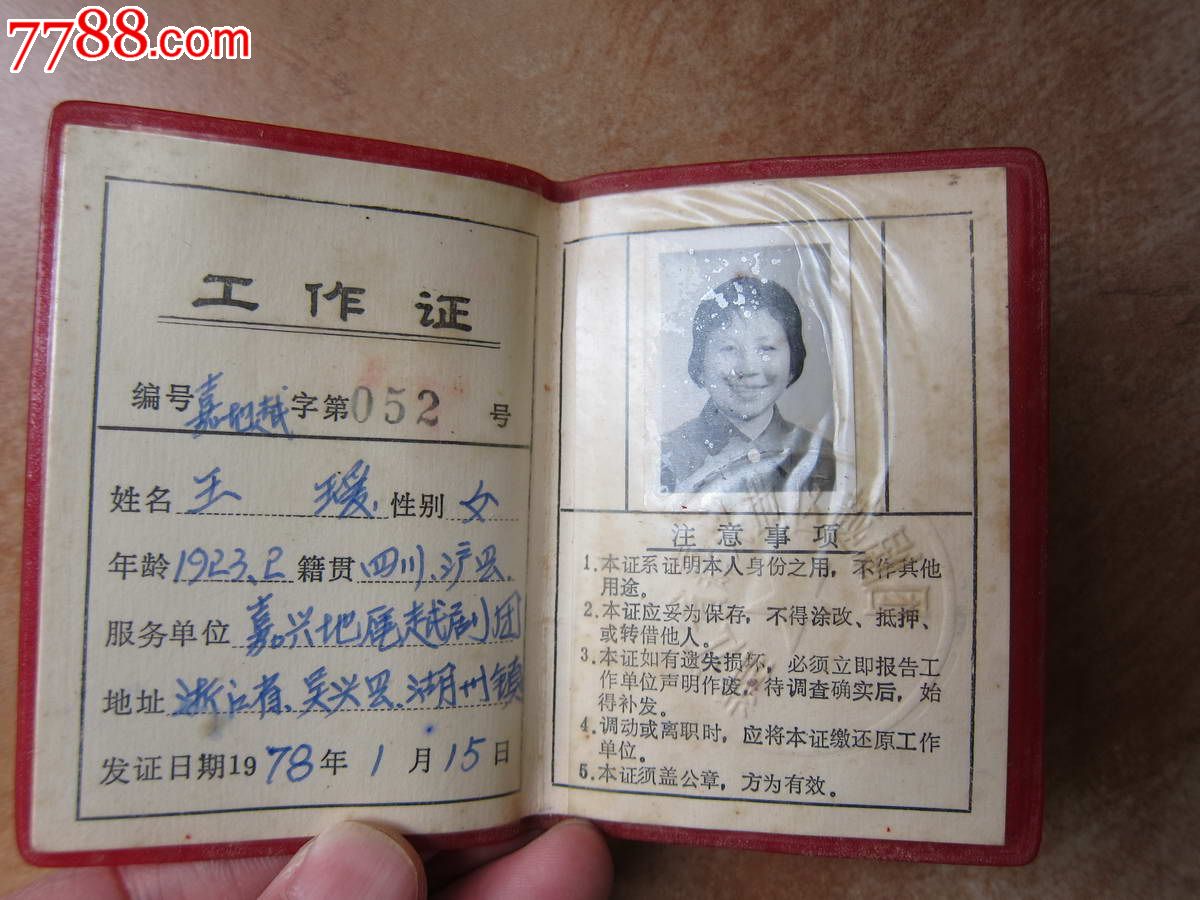 7788.com
工作证
编号嘉地越字第052号
姓名 王 瑗 性别 女
年龄 1923.2 籍贯 四川.泸县.
服务单位 嘉兴地区越剧团
地址 浙江省.吴兴县.湖州镇
发证日期1978年1月15日
注意事项
1.本证系证明本人身份之用，不作其他
用途。
2.本证应妥为保存，不得涂改、抵押、
或转借他人。
3.本证如有遗失损坏，必须立即报告工
作单位声明作废，待调查确实后，始
得补发。
4.调动或离职时，应将本证缴还原工作
单位。
5.本证须盖公章，方为有效。